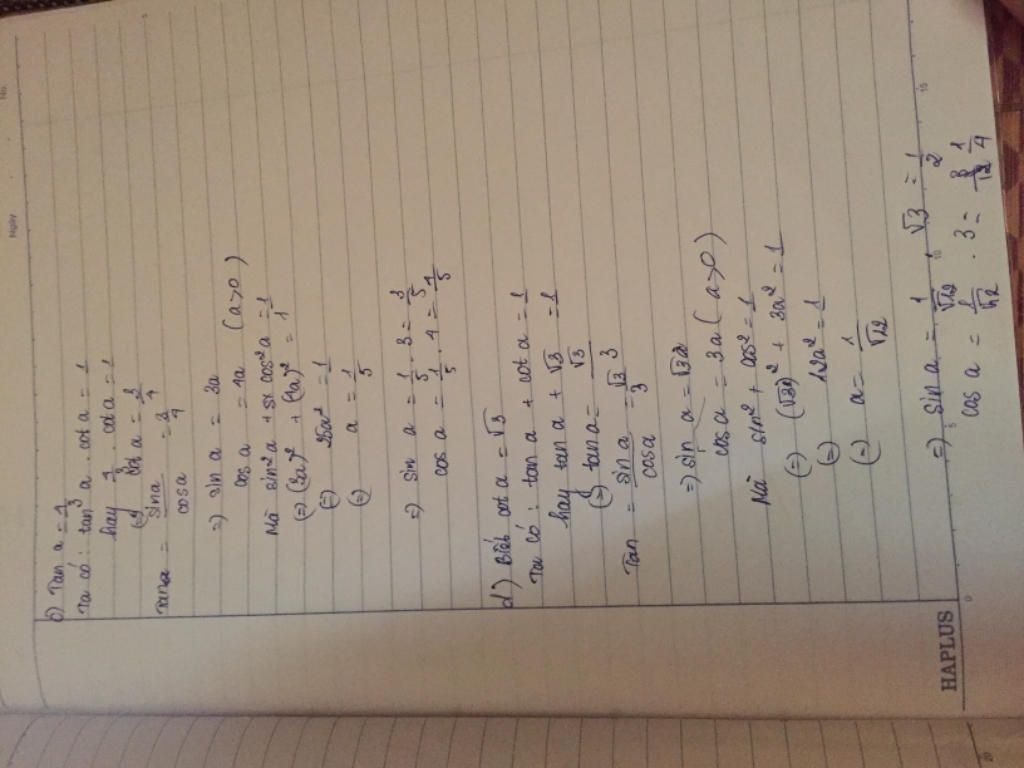 No.
Ngày
c) Tan a = 4/3
Ta có: tan a . cot a = 1
hay 4/3 . cot a = 1
(=) cot a = 3/4
Tan a = sin a / cos a = 3/4
=) sin a = 3a
cos a = 4a (a>0)
Mà sin² a + cos² a = 1
(=) (3a)² + (4a)² = 1
(=) 25a² = 1
(=) a = 1/5
=) sin a = 1/5 . 3 = 3/5
cos a = 1/5 . 4 = 4/5
d) Biết cot a = √3
Ta có: tan a + cot a = 1
hay tan a + √3 = 1
(=) tan a = √3/3
Tan = sin a / cos a = √3/3
=) sin a = √3a
cos a = 3a (a>0)
Mà sin² + cos² = 1
(=) (√3a)² + 3a² = 1
(=) 12a² = 1
(=) a = 1/√12
=) sin a = 1/√12 √3 = 1/2
cos a = 1/√12 . 3 =
HAPLUS
0 5 10 15